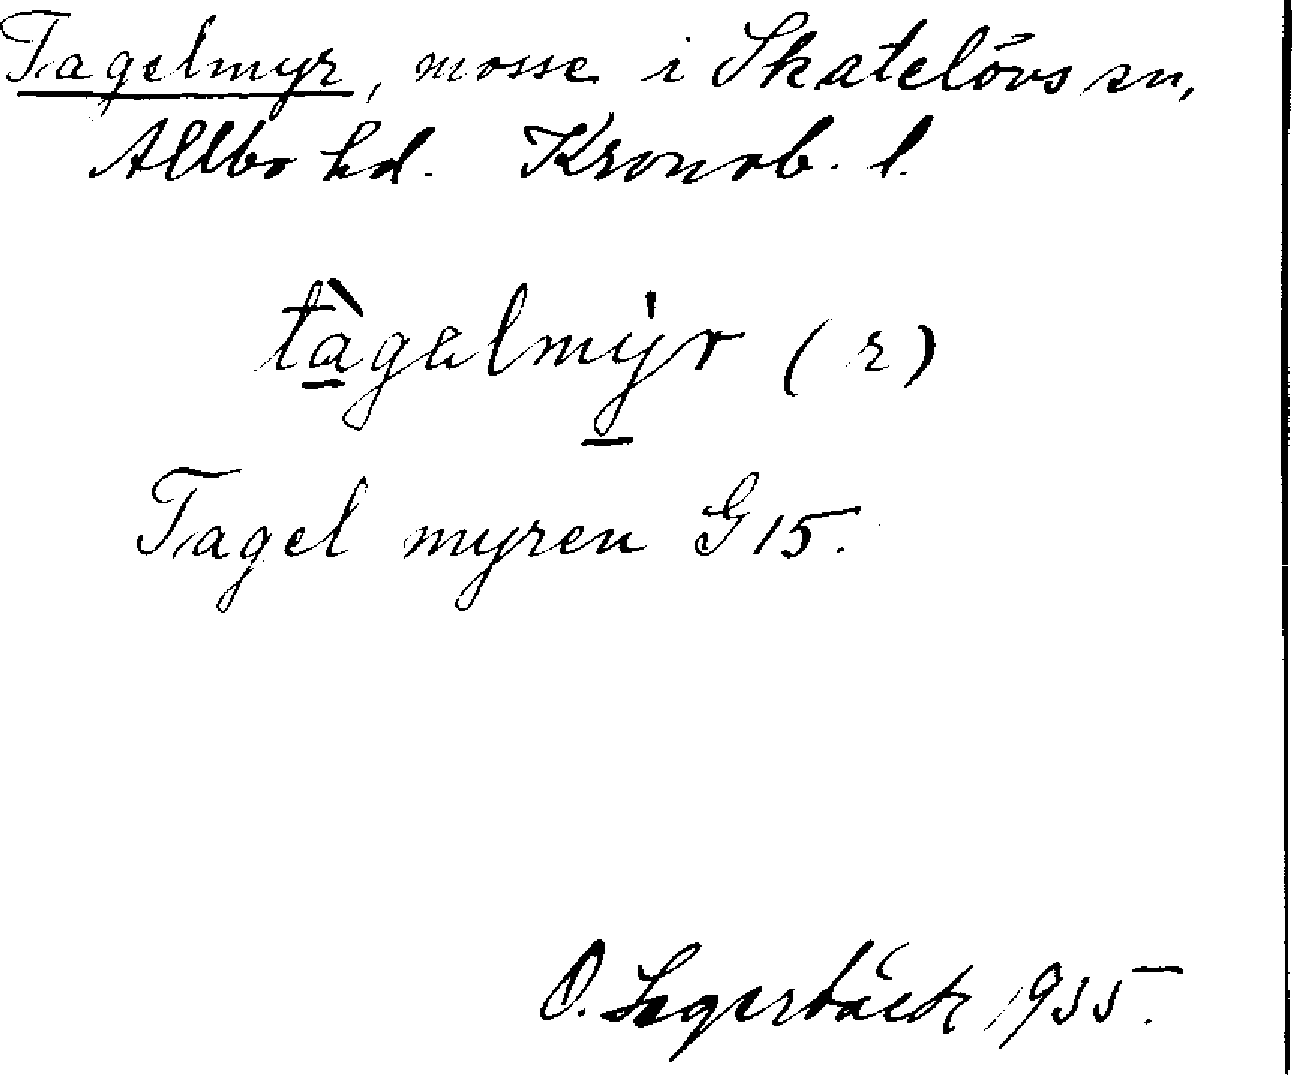 Tagelmyr, mosse i Skatelövs sn,
Allbo hd. Kronob. l.
tàgəlmy̍r (r)
Tagel myren G 15.
O. Lagerbäck 1935.